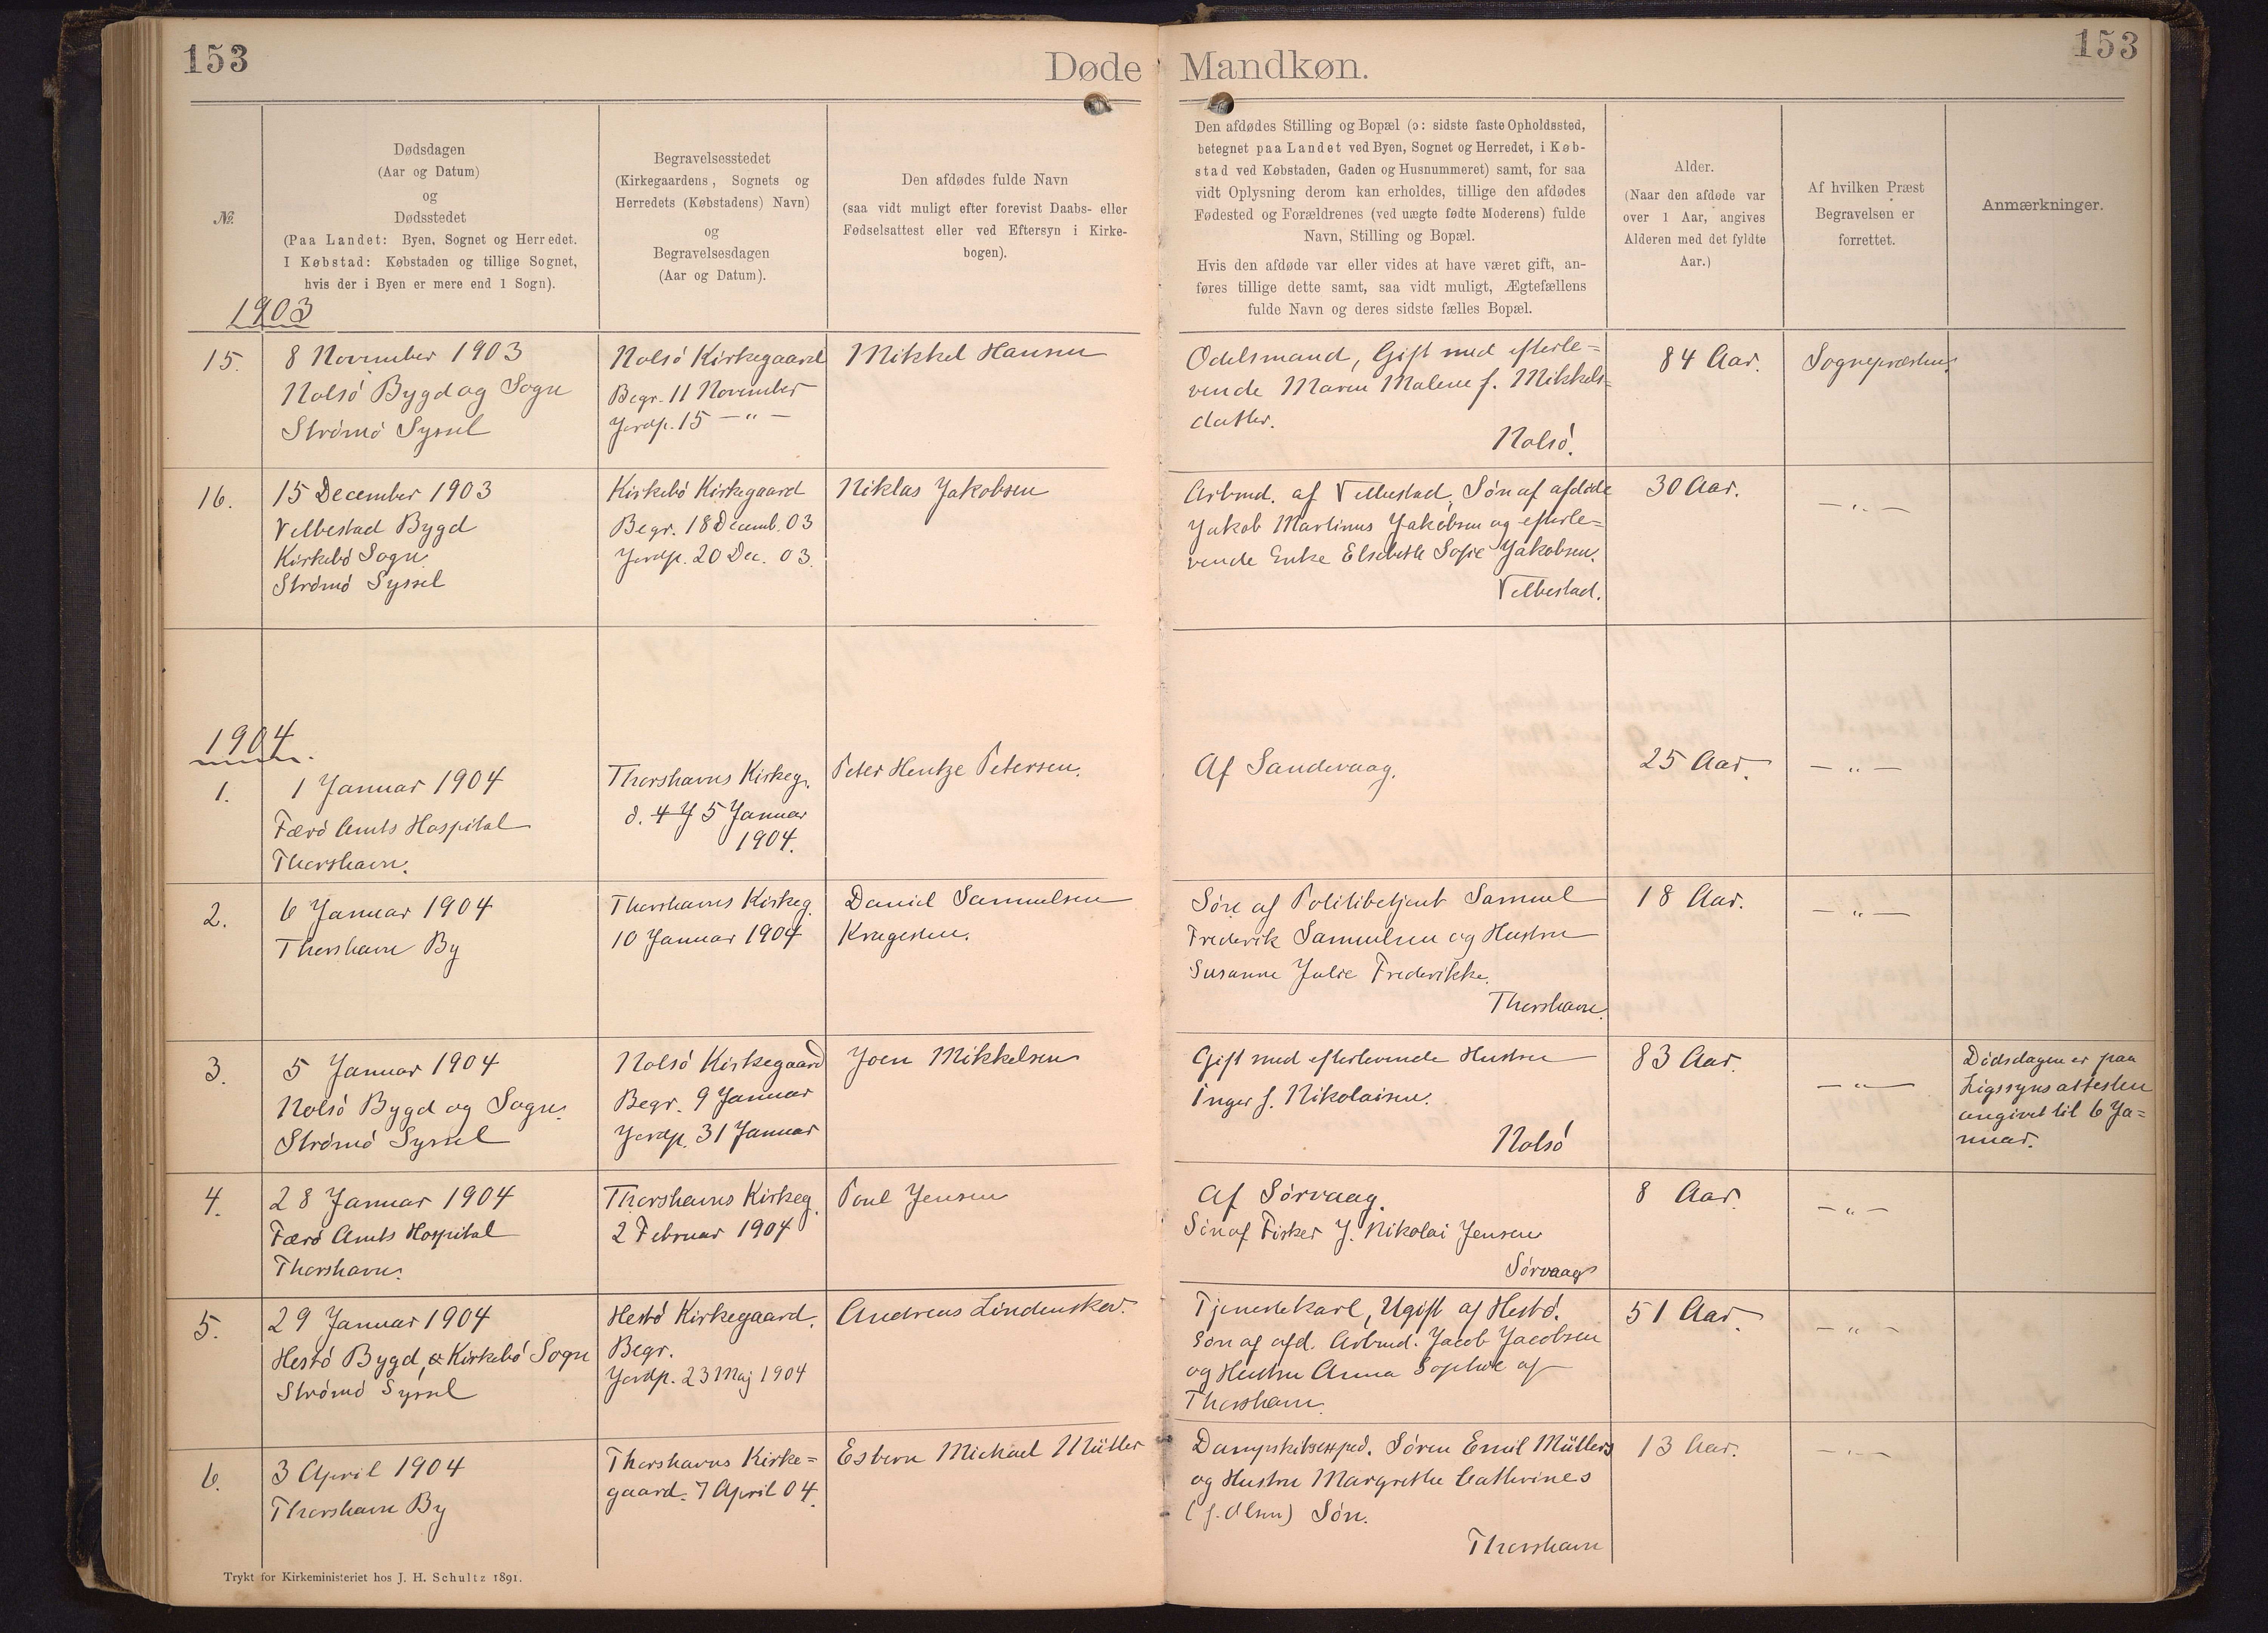 153
Døde Mandkøn.
153
№
Dødsdagen
(Aar og Datum)
og
Dødsstedet
(Paa Landet: Byen, Sognet og Herredet.
I Købstad: Købstaden og tillige Sognet,
hvis der i Byen er mere end 1 Sogn).
Begravelsesstedet
(Kirkegaardens, Sognets og
Herredets (Købstadens) Navn)
og
Begravelsesdagen
(Aar og Datum).
Den afdødes fulde Navn
(saa vidt muligt efter forevist Daabs- eller
Fødselsattest eller ved Eftersyn i Kirke-
bogen).
Den afdødes Stilling og Bopæl (ɔ: sidste faste Opholdssted,
betegnet paa Landet ved Byen, Sognet og Herredet, i Køb-
stad ved Købstaden, Gaden og Husnummeret) samt, for saa
vidt Oplysning derom kan erholdes, tillige den afdødes
Fødested og Forældrenes (ved uægte fødte Moderens) fulde
Navn, Stilling og Bopæl.
Hvis den afdøde var eller vides at have været gift, an-
føres tillige dette samt, saa vidt muligt, Ægtefællens
fulde Navn og deres sidste fælles Bopæl.
Alder.
(Naar den afdøde var
over 1 Aar, angives
Alderen med det fyldte
Aar.)
Af hvilken Præst
Begravelsen er
forrettet.
Anmærkninger.
1903
15.
8 November 1903
Nolsö Bygd og Sogn
Strömö Syssel
Nolsö Kirkegaard
Begr. 11 November
Jordp. 15 — " —
Mikkel Hansen
Odelsmand, Gift med efterle=
vende Maren Malene f. Mikkels=
datter.
Nolsö.
84 Aar.
Sognepræsten.
16.
15 December 1903
Velbestad Bygd
Kirkebö Sogn.
Strömö Syssel
Kirkebö Kirkegaard
Begr. 18 Decemb. 03
Jordp. 20 Dec. 03.
Niklas Jakobsen
Arbmd. af Velbestad, Sön af afdöde
Jakob Martinus Jakobsen og efterle=
vende Enke Elsebeth Sofie Jakobsen.
Velbestad.
30 Aar.
— " —
1904.
1.
1 Januar 1904
Færö Amts Hospital
Thorshavn.
Thorshavns Kirkeg.
d. 4 J 5 Januar
1904.
Peter Hentze Petersen.
Af Sandevaag.
25 Aar.
— " —
2.
6 Januar 1904
Thorshavn By
Thorshavns Kirkeg.
10 Januar 1904
Daniel Samuelsen
Kragesten.
Sön af Politibetjent Samuel
Frederik Samuelsen og Hustru
Susanne Julie Frederikke.
Thorshavn.
18 Aar.
— " —
3.
5 Januar 1904
Nolsö Bygd og Sogn.
Strömö Syssel
Nolsö Kirkegaard
Begr. 9 Januar
Jordp. 31 Januar
Joen Mikkelsen
Gift med efterlevende Hustru
Inger f. Nikolaisen.
Nolsö
83 Aar.
— " —
Dödsdagen er paa
Ligsynsattesten
angivet til 6 Ja=
nuar.
4.
28 Januar 1904
Færö Amts Hospital
Thorshavn.
Thorshavns Kirkeg.
2 Februar 1904
Poul Jensen
Af Sörvaag.
Sön af Fisker J. Nikolai Jensen
Sörvaag
8 Aar.
— " —
5.
29 Januar 1904
Hestö Bygd, Kirkebö Sogn
Strömö Syssel
Hestö Kirkegaard.
Begr.
Jordp. 23 Maj 1904
Andreas Lindenskov.
Tjenestekarl, Ugift af Hestö.
Sön af afd. Arbmd. Jacob Jacobsen
og Hustru Anna Sophie af
Thorshavn.
51 Aar.
— " —
6.
3 April 1904
Thorshavn By
Thorshavns Kirke=
gaard. 7 April 04.
Esbern Michael Müller
Dampskibsexped. Sören Emil Müllers
og Hustru Margrethe Cathrines
(f. Olsen) Sön.
Thorshavn
13 Aar.
— " —
Trykt for Kirkeministeriet hos J. H. Schultz 1891.